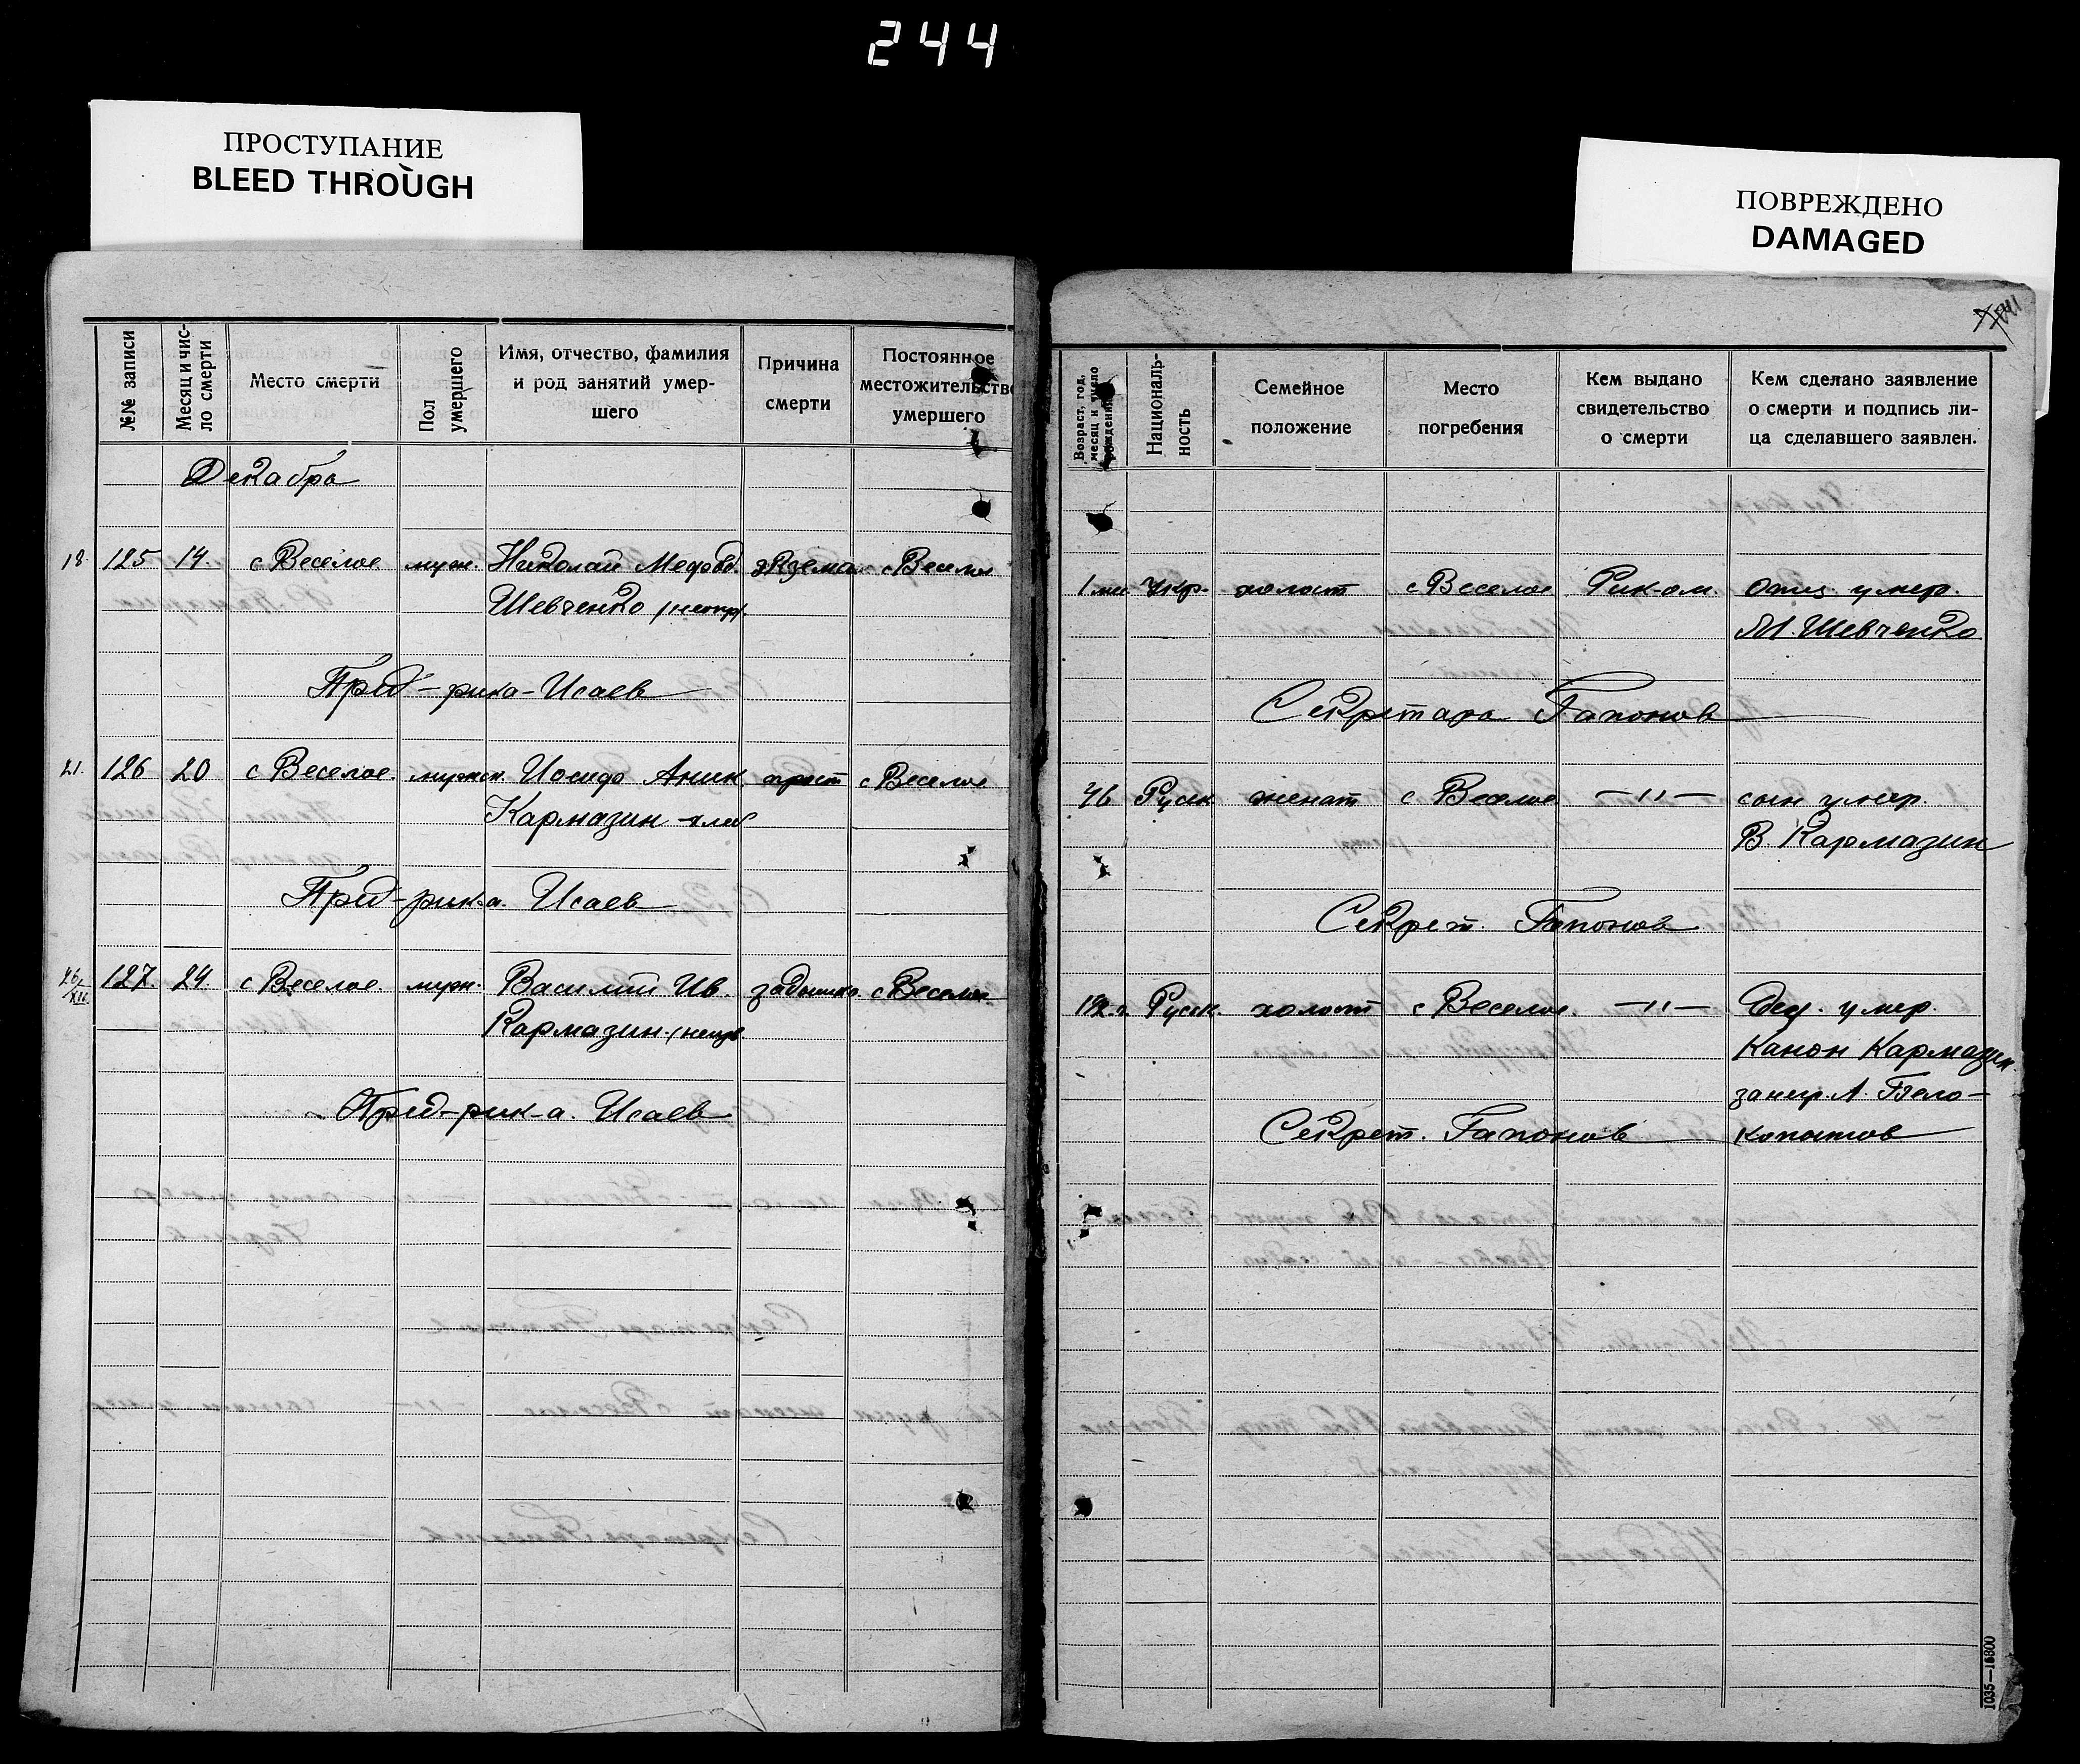 244
ПРОСТУПАНИЕ
BLEED THROUGH
ПОВРЕЖДЕНО
DAMAGED
№№ записи
Месяц и чис-
ло смерти
Место смерти
Пол
умершего
Имя, отчество, фамилия
и род занятий умер-
шего
Причина
смерти
Постоянное
местожительство
умершего
Декабрь
18. 125 14. с Веселое муж. Николай Мефод. экзема с Веселое
Шевченко
Пред-рика-Исаев
21. 126 20 с Веселое мужск. Иосиф Аник. с Веселое
Кармазин -хлеб
Пред-рик-а. Исаев
26/XII 127. 24. с Веселое муж. Василий Ив. с Веселое
Кармазин
Пред-рик-а. Исаев
Возраст, год,
месяц и число
рождения
Националь-
ность
Семейное
положение
Место
погребения
Кем выдано
свидетельство
о смерти
Кем сделано заявление
о смерти и подпись ли-
ца сделавшего заявлен.
1 Укр. холост с Веселое Рик-ом. отец умер.
М. Шевченко
Секретарь Гапонов
76 Русск женат с Веселое —"— сын умер.
В. Кармазин
Секрет. Гапонов
Русск. холост с Веселое. —"— дед. умер.
Канон Кармазин
за негр. А. Бело-
Секрет. Гапонов копытов
1035—15300